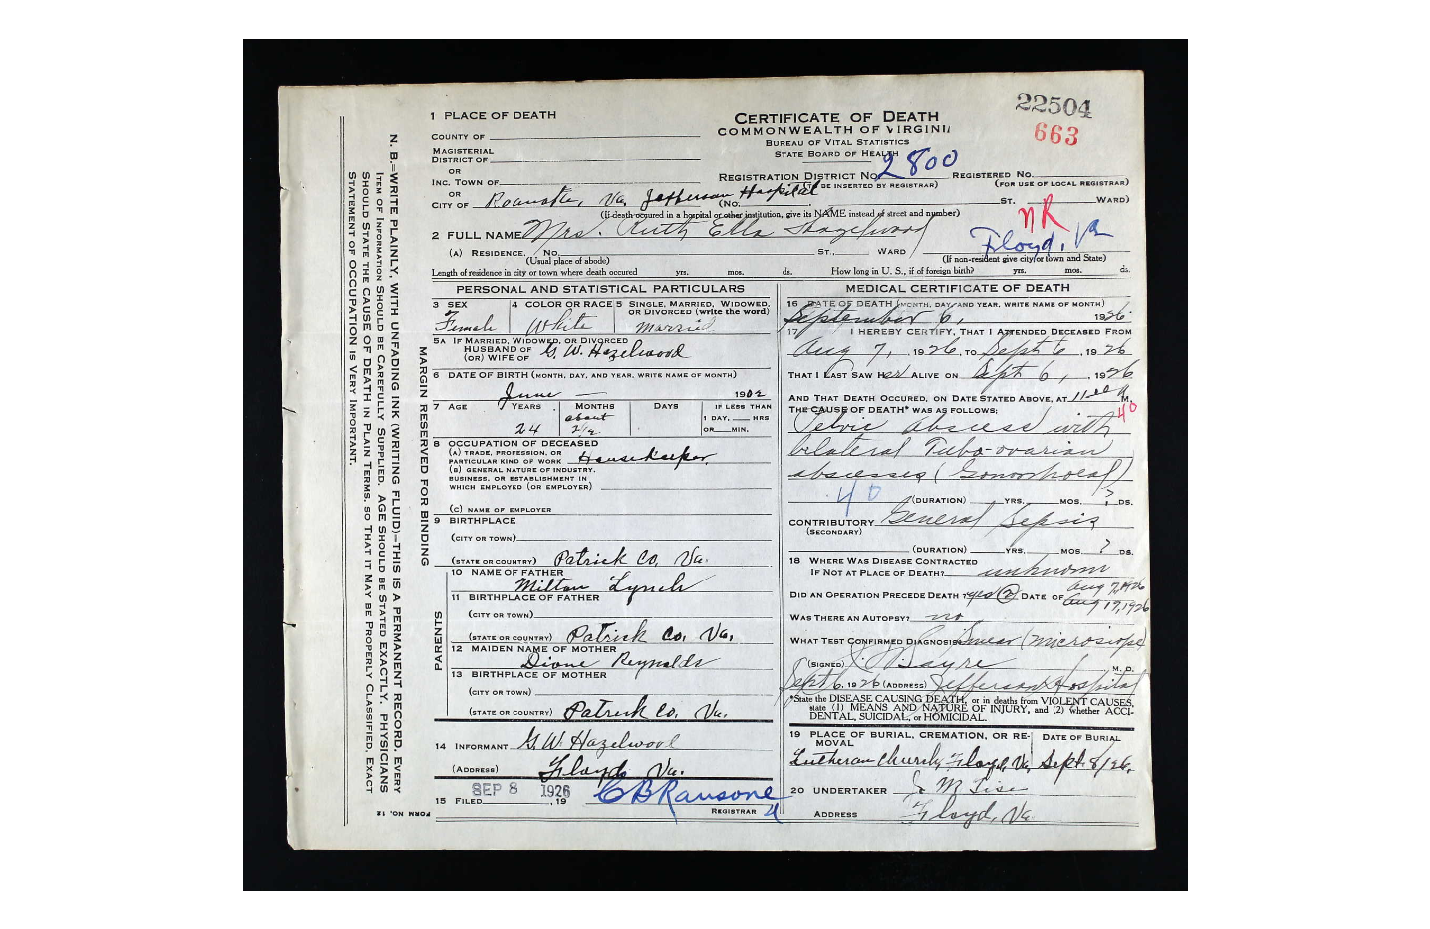 22504
663
1 PLACE OF DEATH
COUNTY OF
MAGISTERIAL
DISTRICT OF
OR
INC. TOWN OF
OR
CITY OF Roanoke, Va. Jefferson Hospital
CERTIFICATE OF DEATH
COMMONWEALTH OF VIRGINIA
BUREAU OF VITAL STATISTICS
STATE BOARD OF HEALTH
REGISTRATION DISTRICT No. 2800 REGISTERED No.
(TO BE INSERTED BY REGISTRAR) (FOR USE OF LOCAL REGISTRAR)
(No. ST. WARD)
(If death occured in a hospital or other institution, give its NAME instead of street and number)
NR
2 FULL NAME Mrs. Ruth Ella Hazelwood
Floyd, Va
(A) RESIDENCE, No. ST., WARD
(Usual place of abode) (If non-resident give city or town and State)
Length of residence in city or town where death occured yrs. mos. ds. How long in U. S., if of foreign birth? yrs. mos. ds.
PERSONAL AND STATISTICAL PARTICULARS
3 SEX 4 COLOR OR RACE 5 SINGLE, MARRIED, WIDOWED, OR DIVORCED (write the word)
Female White Married
5A IF MARRIED, WIDOWED, OR DIVORCED
HUSBAND OF
(OR) WIFE OF G. W. Hazelwood
6 DATE OF BIRTH (MONTH, DAY, AND YEAR, WRITE NAME OF MONTH)
June — 1902
7 AGE YEARS MONTHS DAYS IF LESS THAN
1 DAY, HRS
OR MIN.
24 about 2 1/2
8 OCCUPATION OF DECEASED
(A) TRADE, PROFESSION, OR
PARTICULAR KIND OF WORK Housekeeper
(B) GENERAL NATURE OF INDUSTRY,
BUSINESS, OR ESTABLISHMENT IN
WHICH EMPLOYED (OR EMPLOYER)
(C) NAME OF EMPLOYER
9 BIRTHPLACE
(CITY OR TOWN)
(STATE OR COUNTRY) Patrick Co, Va.
PARENTS
10 NAME OF FATHER
Milton Lynch
11 BIRTHPLACE OF FATHER
(CITY OR TOWN)
(STATE OR COUNTRY) Patrick Co, Va,
12 MAIDEN NAME OF MOTHER
Dione Reynolds
13 BIRTHPLACE OF MOTHER
(CITY OR TOWN)
(STATE OR COUNTRY) Patrick Co, Va.
14 INFORMANT G. W. Hazelwood
(ADDRESS) Floyd, Va.
15 FILED SEP 8 1926, 19 C B Ransone
REGISTRAR
MEDICAL CERTIFICATE OF DEATH
16 DATE OF DEATH (MONTH, DAY, AND YEAR, WRITE NAME OF MONTH)
September 6, 1926
17 I HEREBY CERTIFY, THAT I ATTENDED DECEASED FROM
Aug 7, 1926, TO Sept 6, 1926
THAT I LAST SAW Her ALIVE ON Sept 6, 1926
AND THAT DEATH OCCURED, ON DATE STATED ABOVE, AT M.
THE CAUSE OF DEATH* WAS AS FOLLOWS:
40
Pelvic abscess with
bilateral Tubo-ovarian
abscesses (Gonorrhoeal)
40
(DURATION) YRS. MOS. ? DS.
CONTRIBUTORY General Sepsis
(SECONDARY)
(DURATION) YRS. MOS. ? DS.
18 WHERE WAS DISEASE CONTRACTED
IF NOT AT PLACE OF DEATH? unknown
DID AN OPERATION PRECEDE DEATH? yes (2) DATE OF Aug 7, 1926
Aug 17, 1926
WAS THERE AN AUTOPSY? no
WHAT TEST CONFIRMED DIAGNOSIS Smear (microscope
(SIGNED) Sayre M. D.
Sept 6, 1926 (ADDRESS) Jefferson Hospital
*State the DISEASE CAUSING DEATH, or in deaths from VIOLENT CAUSES,
state (1) MEANS AND NATURE OF INJURY, and (2) whether ACCI-
DENTAL, SUICIDAL, or HOMICIDAL.
19 PLACE OF BURIAL, CREMATION, OR RE-
MOVAL DATE OF BURIAL
Lutheran Church, Floyd, Va, Sept. 8/26,
20 UNDERTAKER
ADDRESS Floyd, Va.
MARGIN RESERVED FOR BINDING
N. B.—WRITE PLAINLY, WITH UNFADING INK (WRITING FLUID)—THIS IS A PERMANENT RECORD. EVERY
ITEM OF INFORMATION SHOULD BE CAREFULLY SUPPLIED. AGE SHOULD BE STATED EXACTLY. PHYSICIANS
SHOULD STATE THE CAUSE OF DEATH IN PLAIN TERMS, SO THAT IT MAY BE PROPERLY CLASSIFIED. EXACT
STATEMENT OF OCCUPATION IS VERY IMPORTANT.
FORM NO. 12